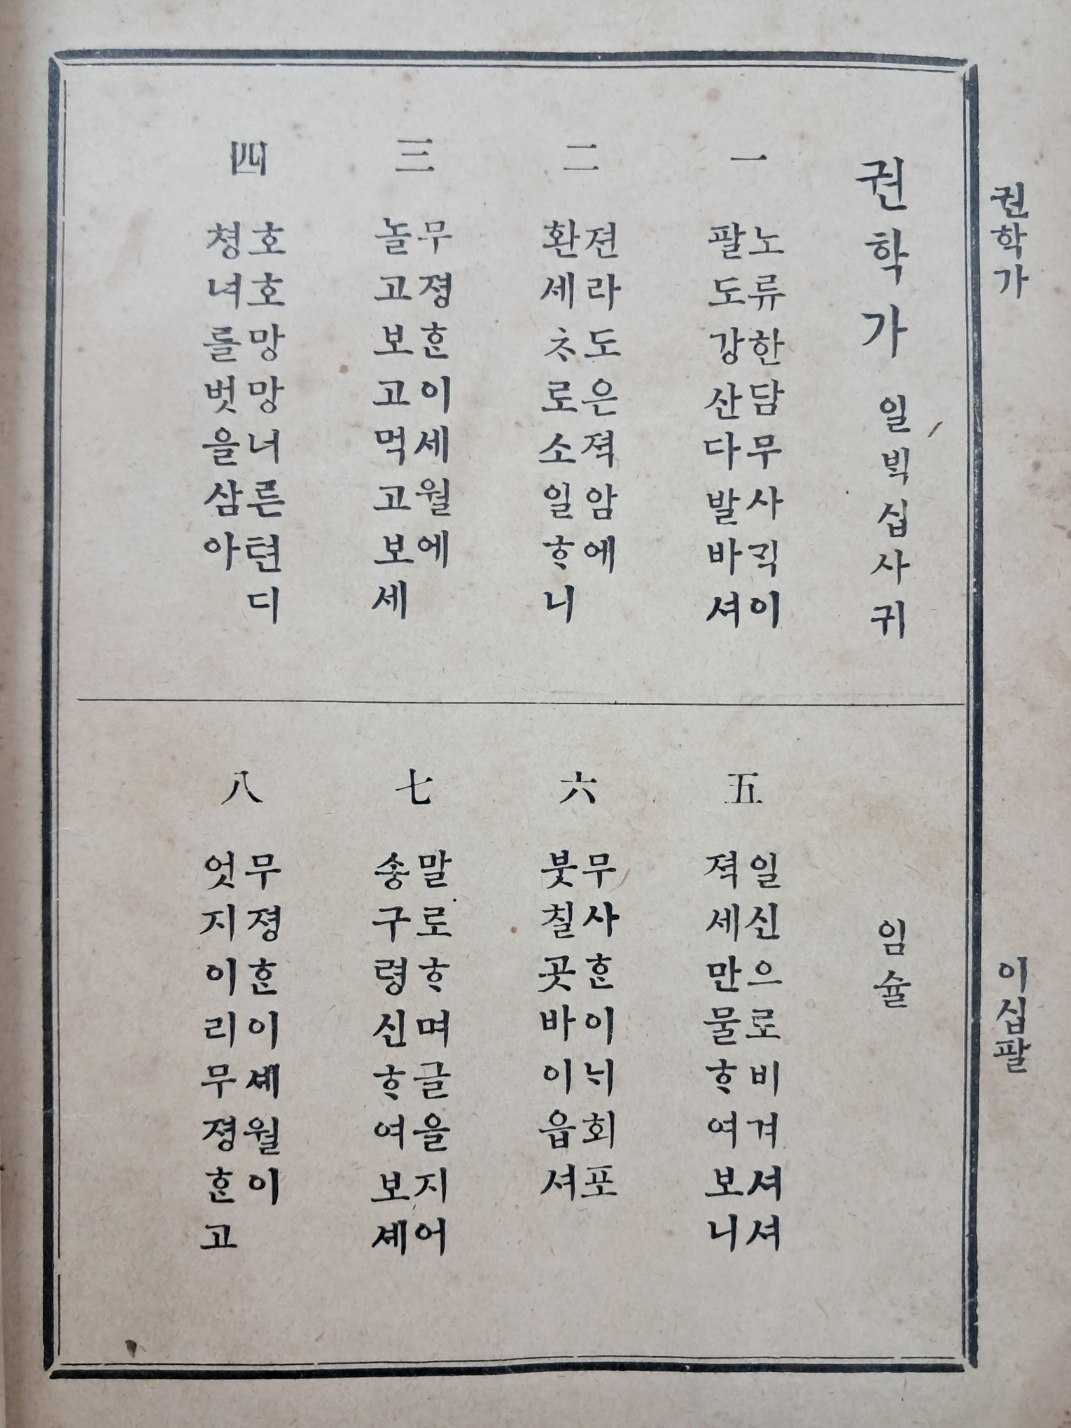 권학가
이십팔
권학가 일ᄇᆡᆨ십사귀
임슐
一
노류한담무사ᄀᆡᆨ이
팔도강산다발바셔
二
젼라도은젹암에
환세ᄎᆞ로소일ᄒᆞ니
三
무졍ᄒᆞᆫ이세월에
놀고보고먹고보세
四
호호망망너른텬디
쳥녀를벗을삼아
五
일신으로비겨셔셔
젹세만물ᄒᆞ여보니
六
무사ᄒᆞᆫ이ᄂᆡ회포
붓칠곳바이읍셔
七
말로ᄒᆞ며글을지어
송구령신ᄒᆞ여보셰
八
무졍ᄒᆞᆫ이셰월이
엇지이리무졍ᄒᆞᆫ고